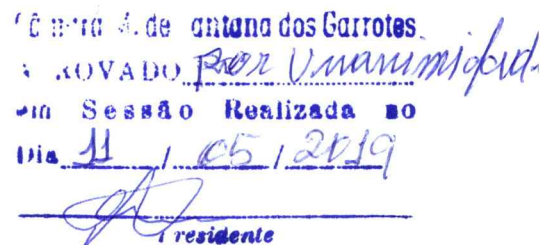 de antana dos Garrotes
ROVADO por Unanimidad
Em Sessão Realizada no
Dia 11 / 05 / 2019
residente